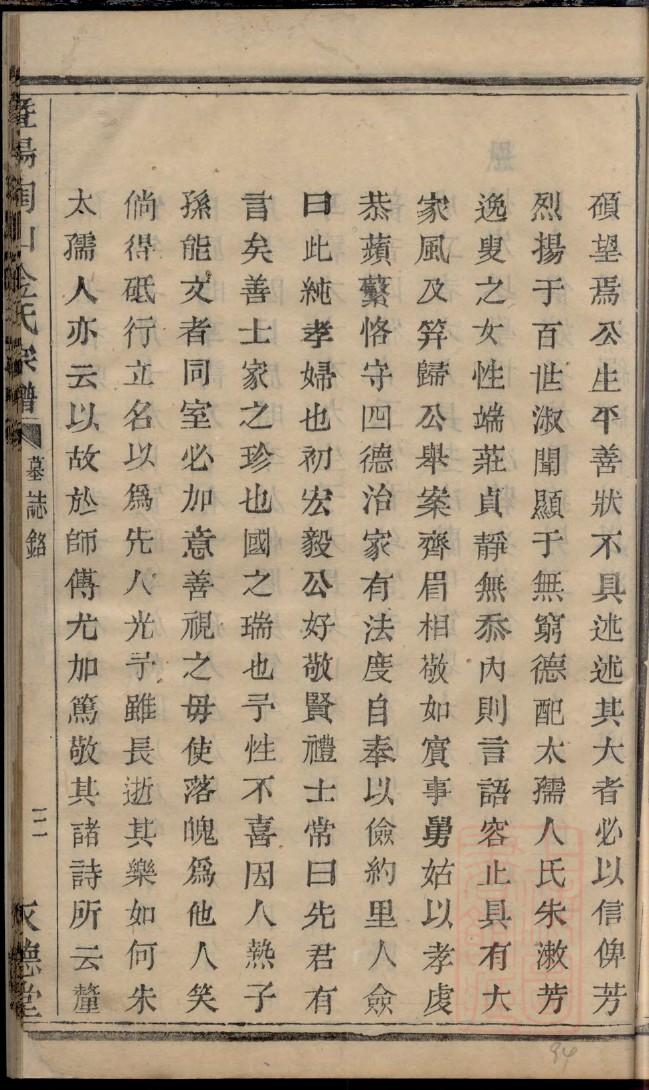 碩望焉公生平善狀不具述述其大者必以信俾芳
烈揚于百世淑聞顯于無窮德配太孺人氏朱漱芳
逸叟之女性端莊貞靜無忝內則言語容止具有大
家風及笄歸公舉案齊眉相敬如賓事舅姑以孝虔
恭蘋蘩恪守四德治家有法度自奉以儉約里人僉
曰此純孝婦也初宏毅公好敬賢禮士常曰先君有
言矣善士家之珍也國之瑞也予性不喜因人熱子
孫能文者同室必加意善視之毋使落魄為他人笑
倘得砥行立名以為先人光予雖長逝其樂如何朱
太孺人亦云以故於師傅尤加篤敬其諸詩所云釐
暨陽 山金氏宗譜
墓誌銘
德堂
94